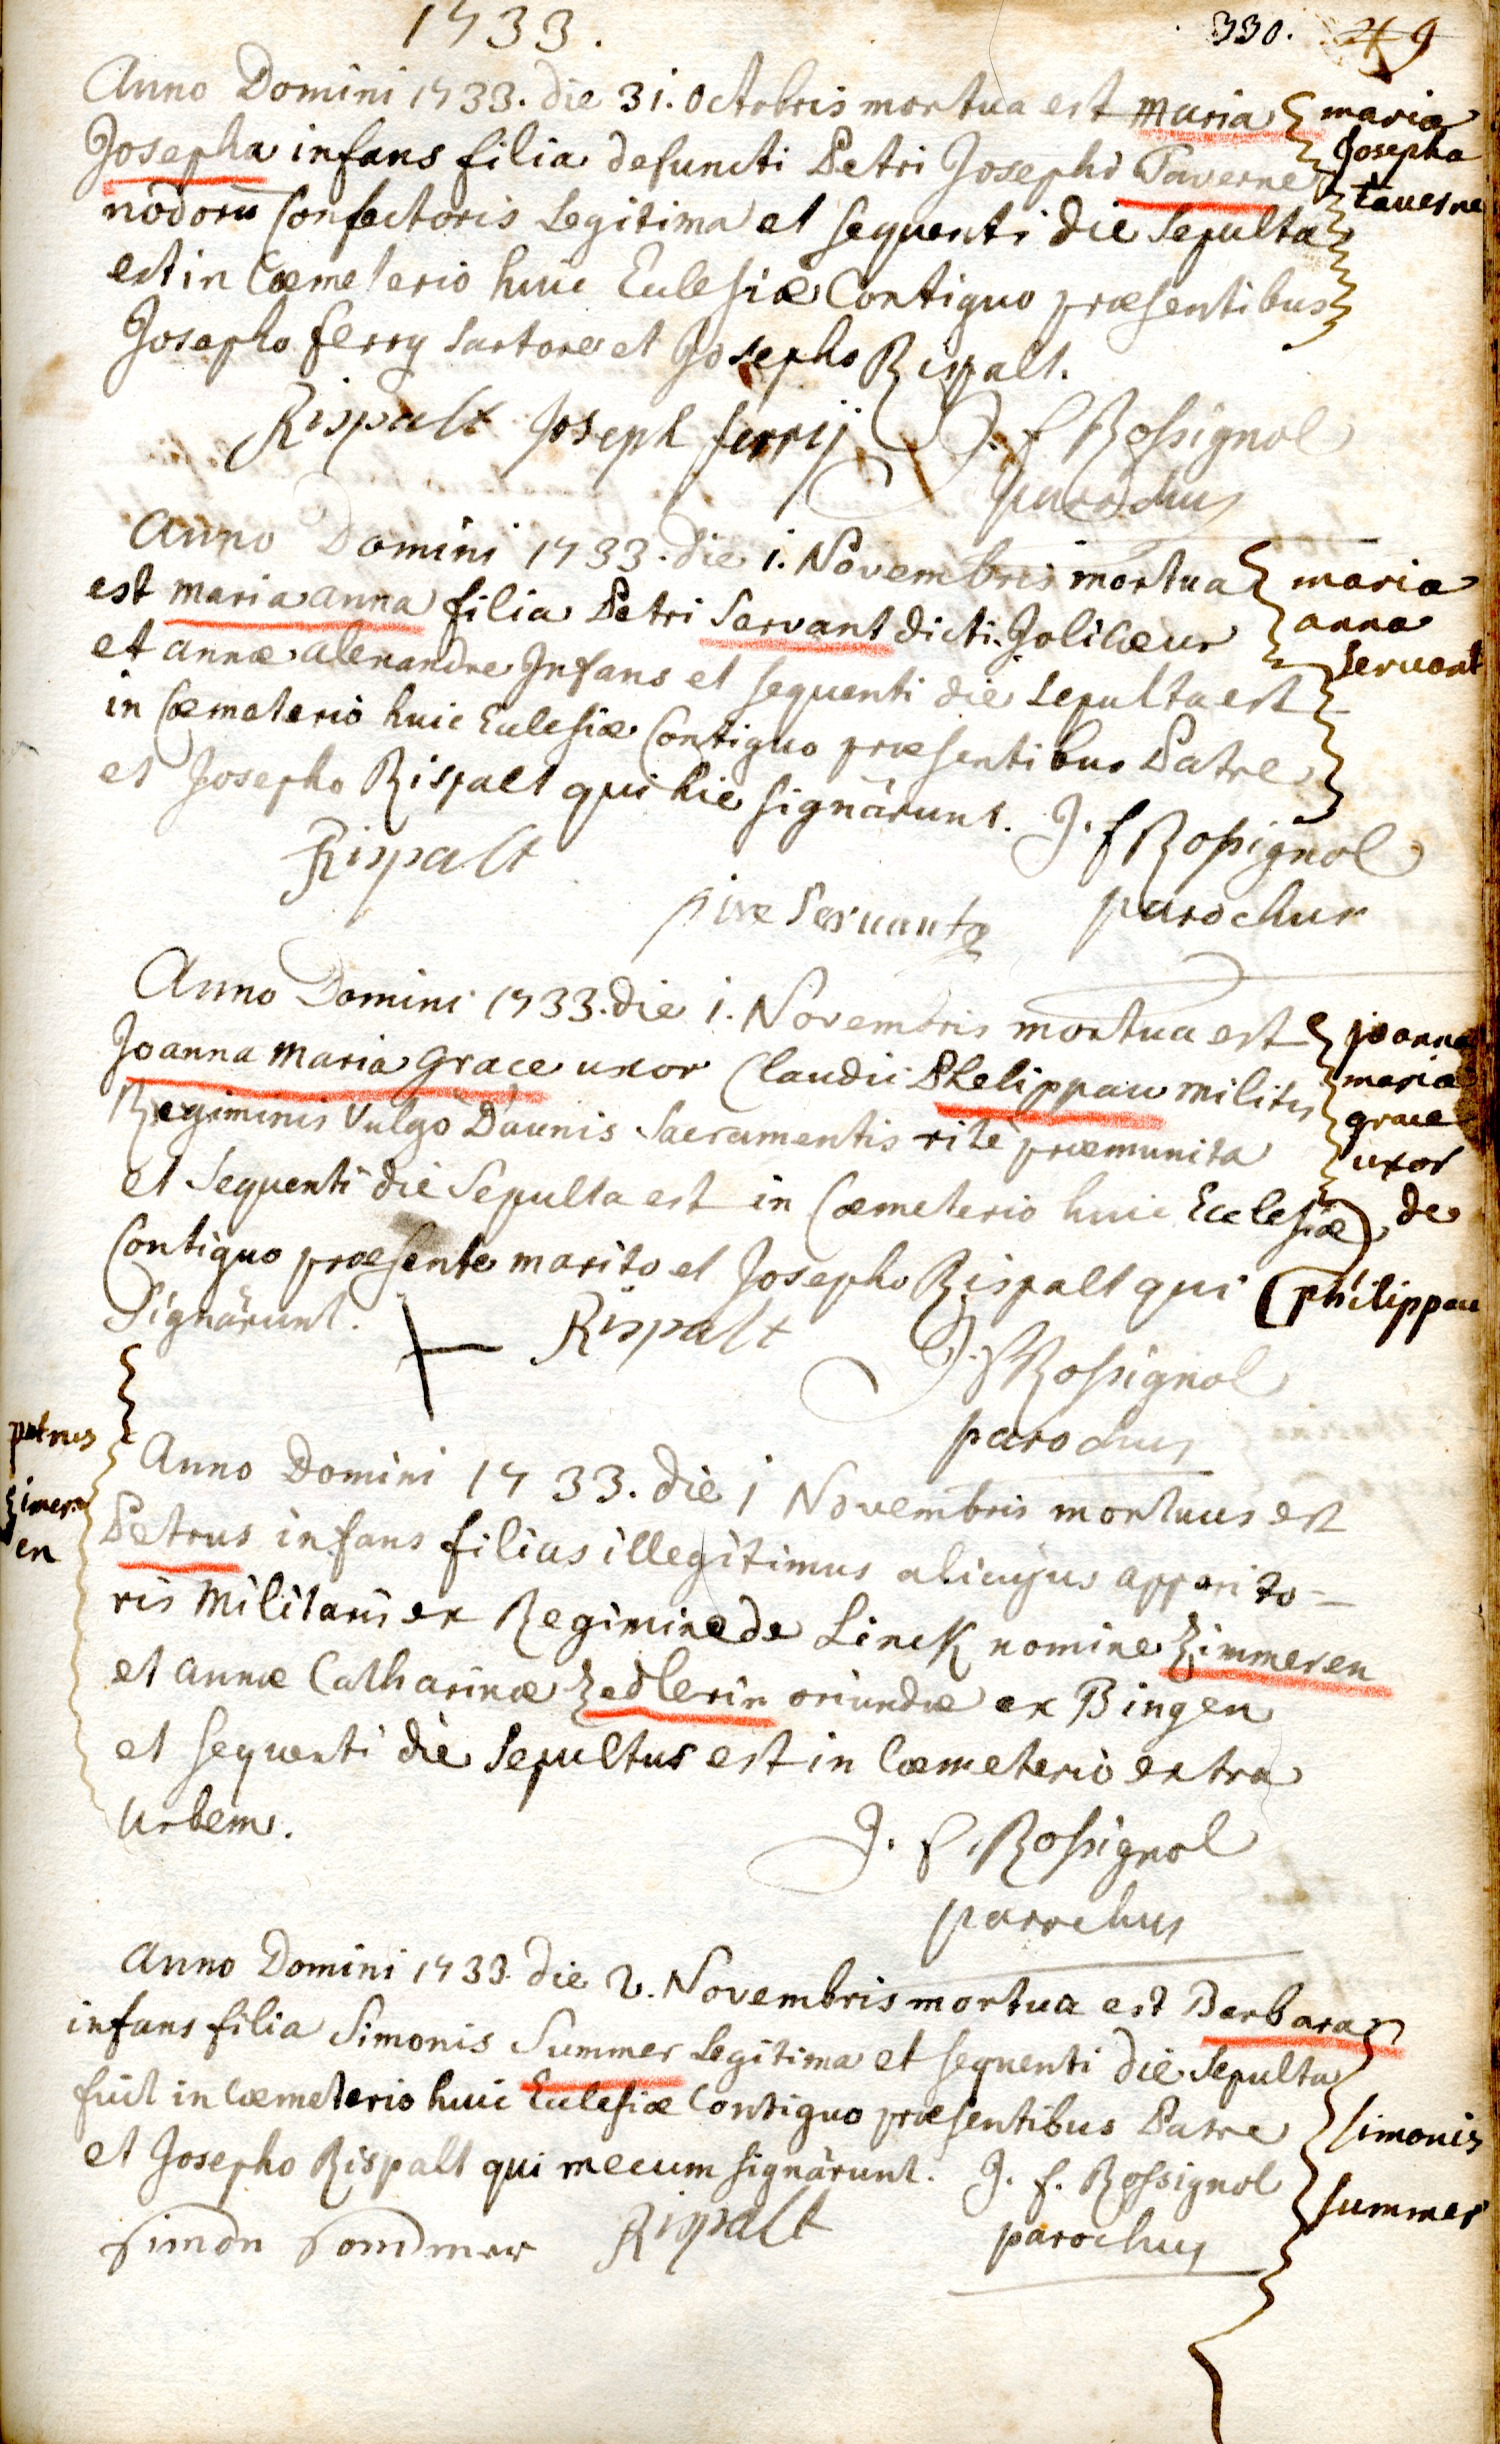 1733.
330. 249
Anno Domini 1733. die 31. Octobris mortua est Maria
Josepha infans filia defuncti Petri Josephi Taverne
nodorū Confectoris Legitima et sequenti die Sepulta
est in Cœmeterio huic Eclesiæ Contiguo præsentibus
Josepho ferry Sartore et Josepho Rispalt.
maria
Josepha
tauerne
Rispalt Joseph ferrij J. f Rossignol
parochus
Anno Domini 1733. die 1. Novembris mortua
est Maria anna filia Petri Servant dicti Jolicœur
et annæ alexandre Infans et sequenti die Sepulta est
in Cœmeterio huic Eclesiæ Contiguo præsentibus Patre
et Josepho Rispalt qui hic signârunt.
maria
anna
seruant
J. f Rossignol
parochus
Rispalt
Servant
Anno Domini 1733. die 1. Novembris mortua est
Joanna Maria Grace uxor Claudii Phelippau militis
Regiminis Vulgo Daunis Sacramentis rite præmunita
et Sequenti die Sepulta est in Cœmeterio huic Ecclesiæ
Contiguo præsente marito et Josepho Rispalt qui
Signârunt.
joanna
maria
grace
uxor
de
philippau
Rispalt J. f Rossignol
parochus
petrus
zimer
en
Anno Domini 1733. die 1 Novembris mortuus est
Petrus infans filius illegitimus alicujus apparito-
ris Militaris ex Regimine de Linck nomine Zimmeren
et annæ Catharinæ Zedlerin oriundæ ex Bingen
et sequenti die Sepultus est in Cœmeterio extra
Urbem.
J. f. Rossignol
parochus
Anno Domini 1733. die 2. Novembris mortua est Barbara
infans filia Simonis Summer Legitima et sequenti die Sepulta
fuit in Cœmeterio huic Eclesiæ Contiguo præsentibus Patre
et Josepho Rispalt qui mecum signârunt.
simonis
summer
J. f. Rossignol
parochus
simon sommer Rispalt